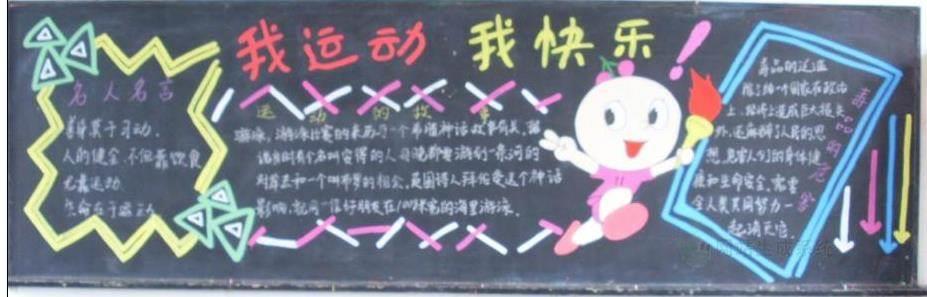 我运动 我快乐!
名人名言
养身莫于习动.
人的健全,不但靠饮食
尤靠运动
生命在于运动
运动的故事
游泳,游泳比赛的来历与一个希腊神话故事有关,据
说当时有个名叫安得的人每晚都要游们一条河的
对岸去和一个叫希罗的相会,英国诗人拜伦受这个神话
影响,就同一位好朋友在 的海里游泳.
毒品的危害
毒品的危害
除了给 国家在政治
上,经济上造成巨大损失
外,还麻醉了人民的思
想,危害人们的身体健
康和生命安全,需要
全人类共同努力一
起消灭它.